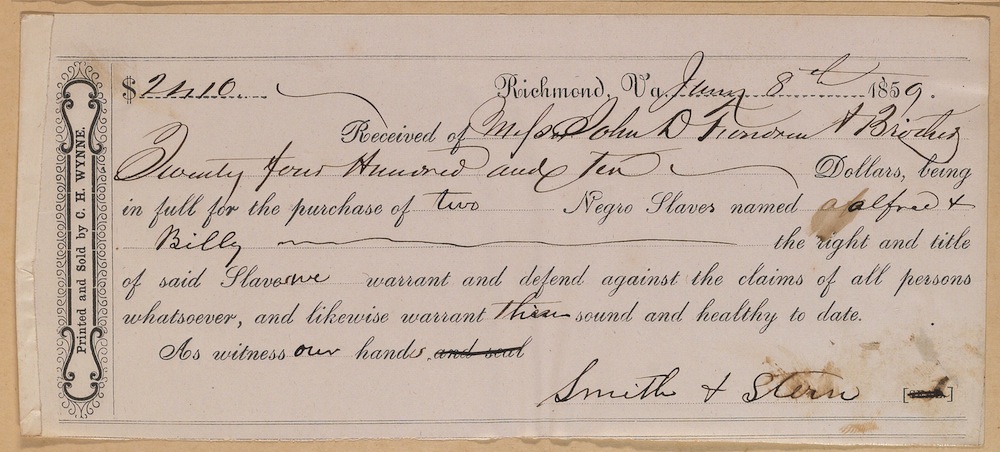 Printed and Sold by C. H. WYNNE.
$2410. Richmond, Va. Jany 8th 1859.
Received of Messrs John D Fondren & Brother
Twenty four Hundred and ten Dollars, being
in full for the purchase of two Negro Slaves named alfred &
Billy the right and title
of said Slaves we warrant and defend against the claims of all persons
whatsoever, and likewise warrant them sound and healthy to date.
As witness our hands and seal
Smith & Stern